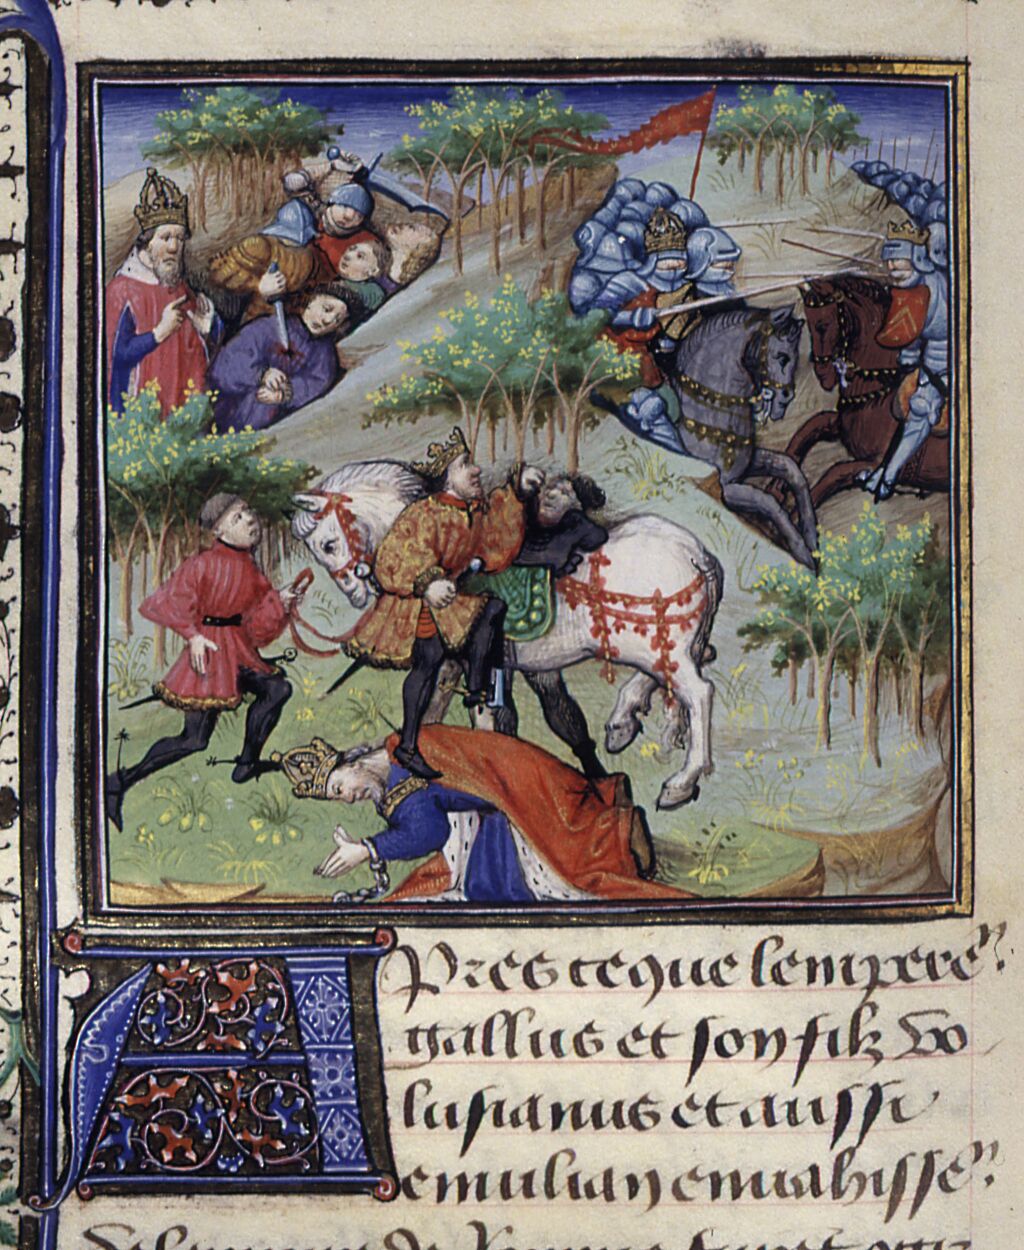 Apres ce que lempere
gallus et son filz vo
lusianus et aussi
emulian enuahisse